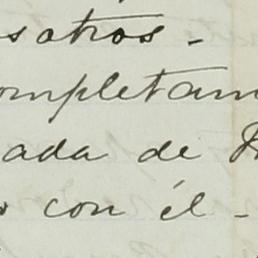 sotros -
ompletam
ada de
con él -